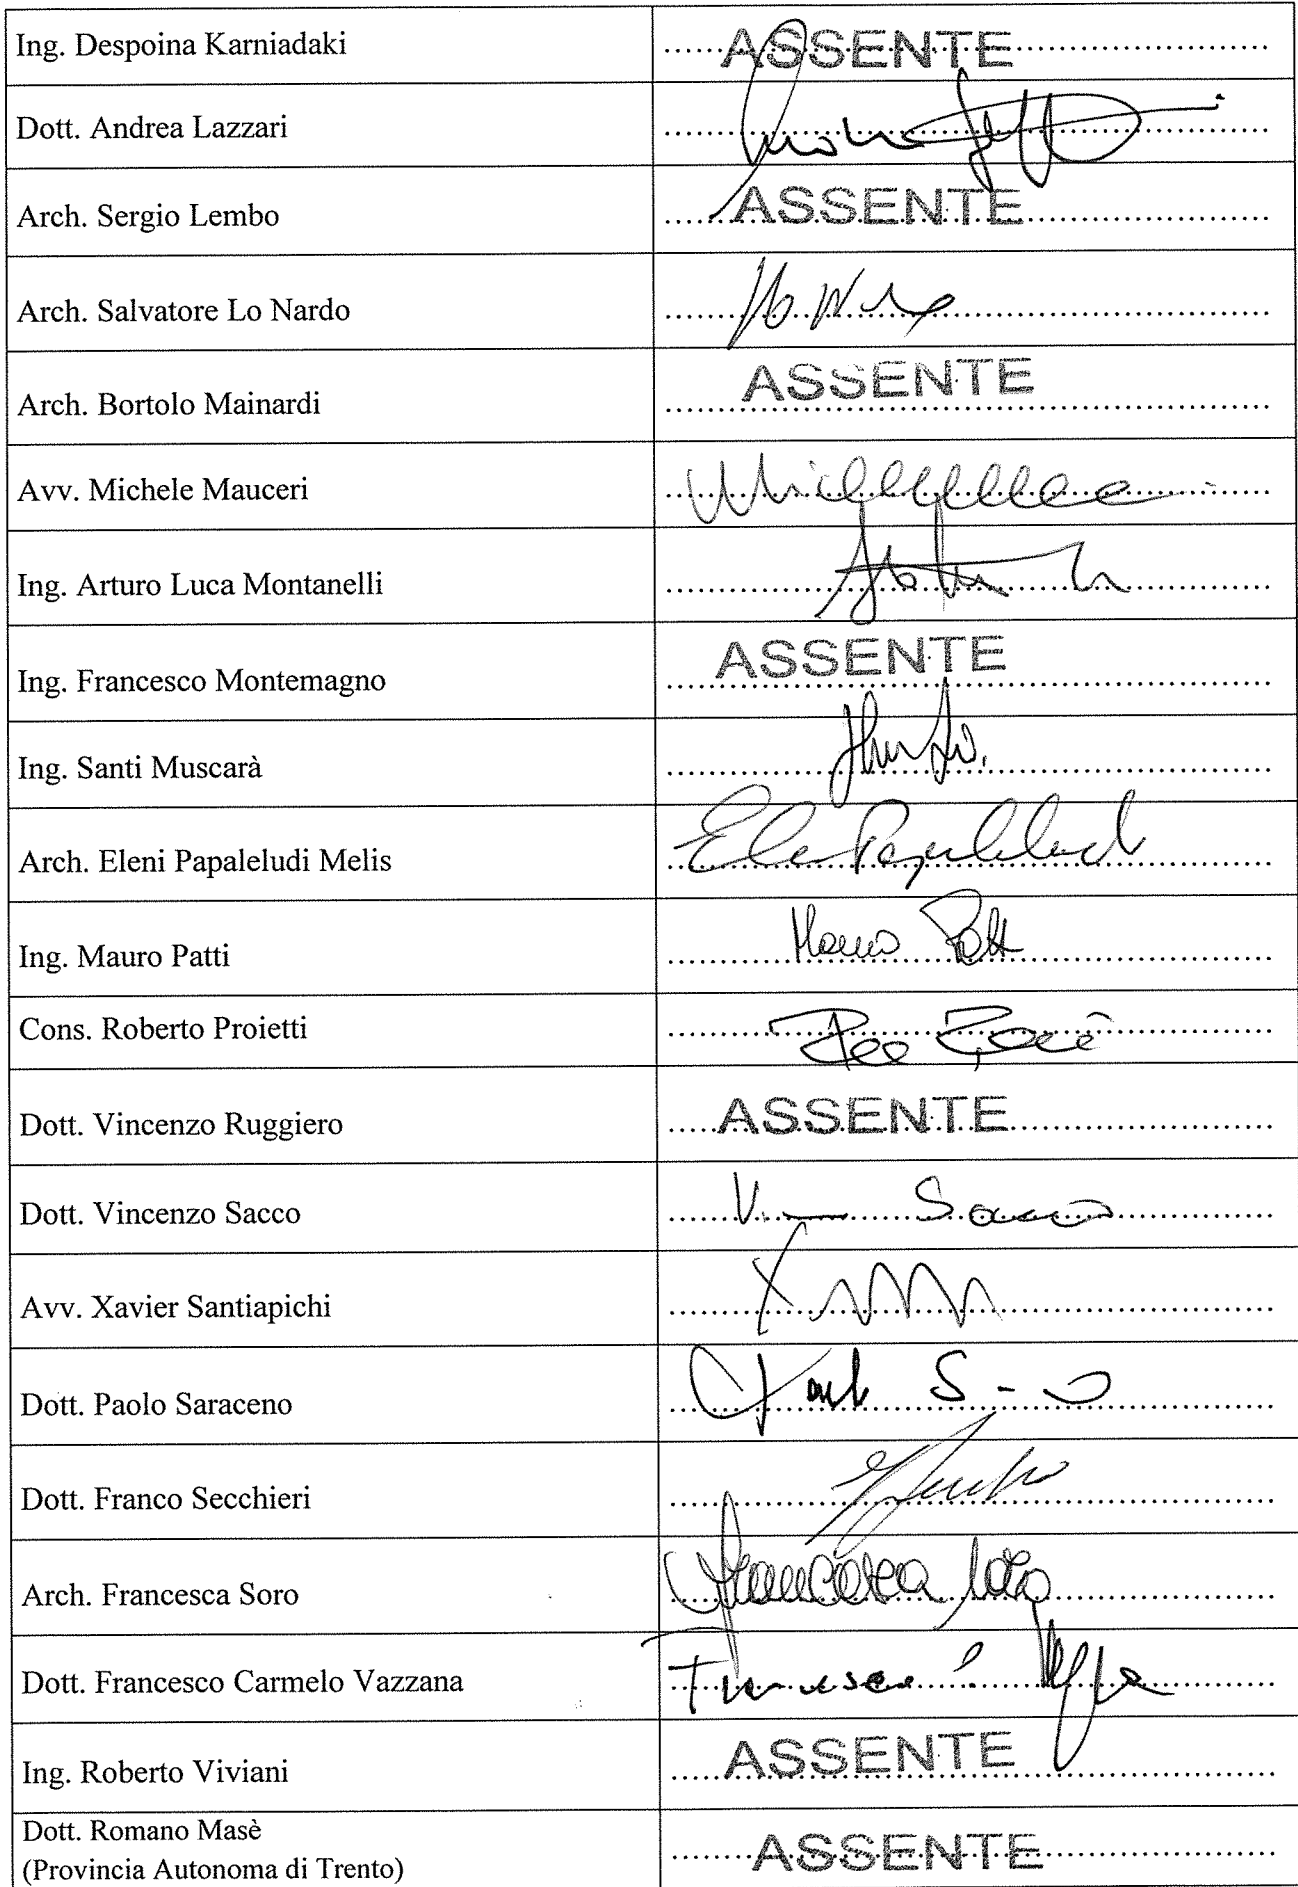 Ing. Despoina Karniadaki ASSENTE
Dott. Andrea Lazzari
Arch. Sergio Lembo ASSENTE
Arch. Salvatore Lo Nardo
Arch. Bortolo Mainardi ASSENTE
Avv. Michele Mauceri
Ing. Arturo Luca Montanelli
Ing. Francesco Montemagno ASSENTE
Ing. Santi Muscarà
Arch. Eleni Papaleludi Melis
Ing. Mauro Patti Mauro Patti
Cons. Roberto Proietti
Dott. Vincenzo Ruggiero ASSENTE
Dott. Vincenzo Sacco
Avv. Xavier Santiapichi
Dott. Paolo Saraceno
Dott. Franco Secchieri
Arch. Francesca Soro Francesca Soro
Dott. Francesco Carmelo Vazzana
Ing. Roberto Viviani ASSENTE
Dott. Romano Masè
(Provincia Autonoma di Trento) ASSENTE